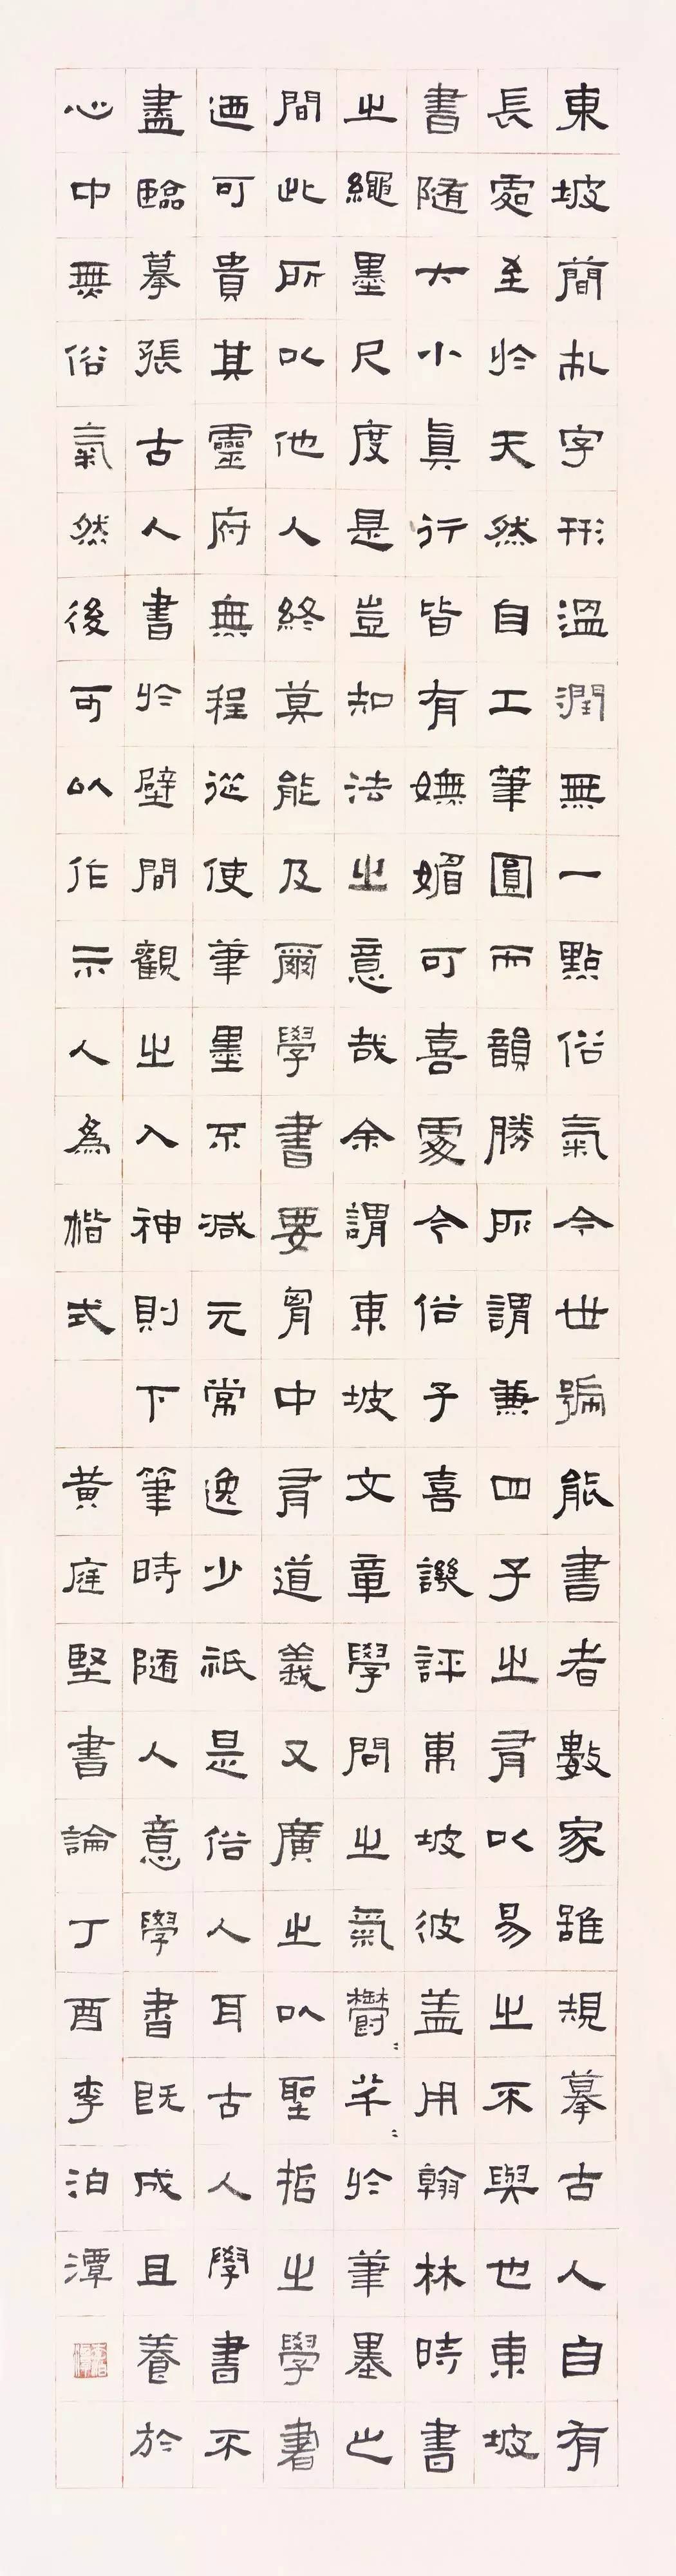 東坡簡札字形溫潤無一點俗氣今世號能書者數家雖規摹古人自有
長處至於天然自工筆圓而韻勝所謂兼四子之有以易之不與也東坡
書隨大小真行皆有嫵媚可喜處今俗子喜譏評東坡彼蓋用翰林時書
之繩墨尺度是豈知法之意哉余謂東坡文章學問之氣鬱〻芊〻於筆墨之
間此所以他人終莫能及爾學書要胷中有道義又廣之以聖哲之學書
迺可貴其靈府無程從使筆墨不減元常逸少祇是俗人耳古人學書不
盡臨摹張古人書於壁間觀之入神則下筆時隨人意學書既成且養於
心中無俗氣然後可以作示人為楷式 黃庭堅書論丁酉李泊潭